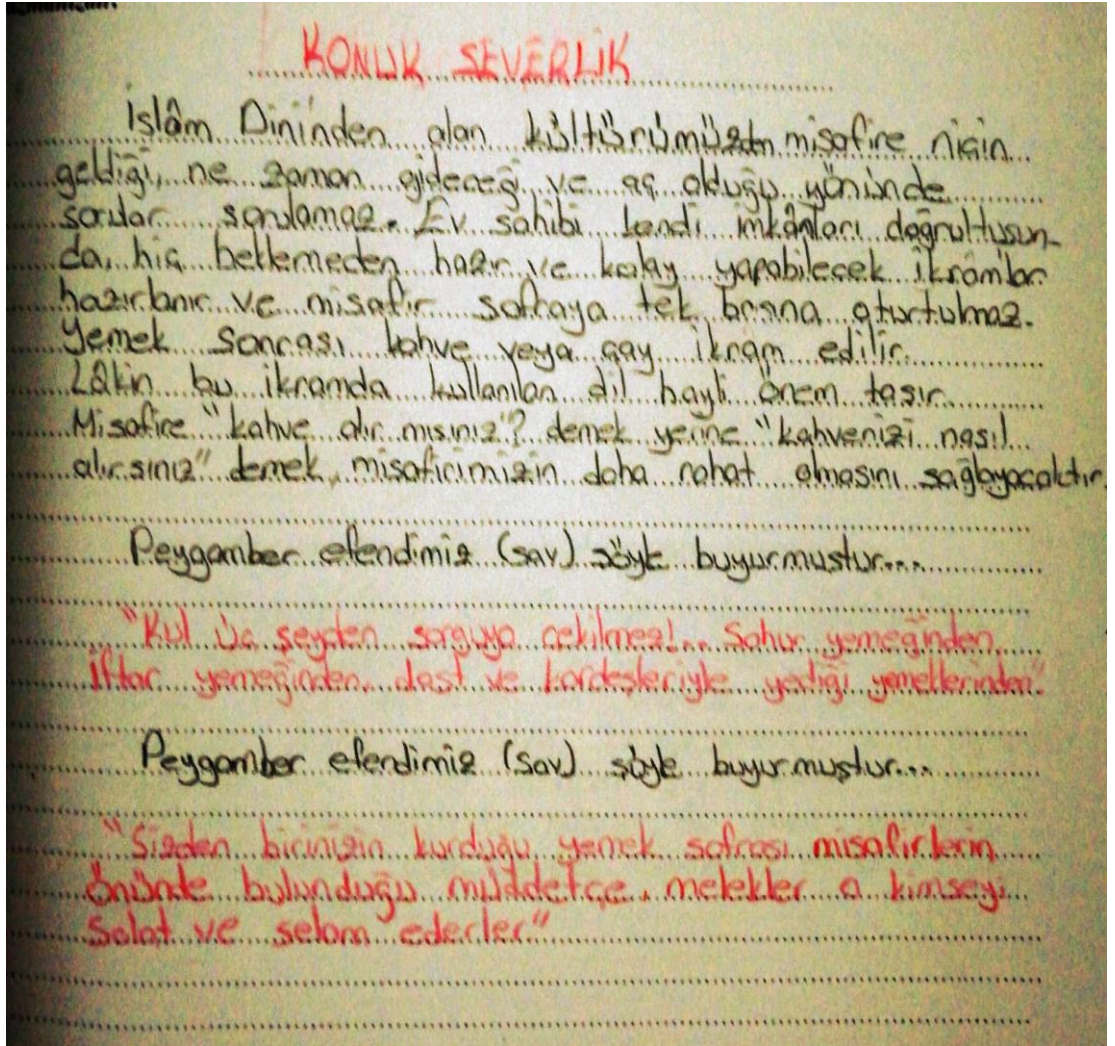 KONUK SEVERLİK
İslâm Dininden alan kültürümüzden misafire niçin
geldiği, ne zaman gideceği ve aç olduğu yönünde
sorular sorulamaz. Ev sahibi kendi imkânları doğrultusun-
da, hiç beklemeden hazır ve kolay yapabilecek ikramlar
hazırlanır ve misafir sofraya tek başına oturtulmaz.
Yemek sonrası kahve veya çay ikram edilir.
Lâkin bu ikramda kullanılan dil hayli önem taşır.
Misafire "kahve alır mısınız"? demek yerine "kahvenizi nasıl
alırsınız" demek, misafirimizin daha rahat olmasını sağlayacaktır.
Peygamber efendimiz (sav) şöyle buyurmuştur...
"Kul üç şeyden sorguya çekilmez!.. Sahur yemeğinden,
İftar yemeğinden, dost ve kardeşleriyle yediği yemeklerinden"
Peygamber efendimiz (sav) şöyle buyurmuştur...
"Sizden birinizin kurduğu yemek sofrası misafirlerin
önünde bulunduğu müddetçe, melekler o kimseyi
Salat ve selam ederler"